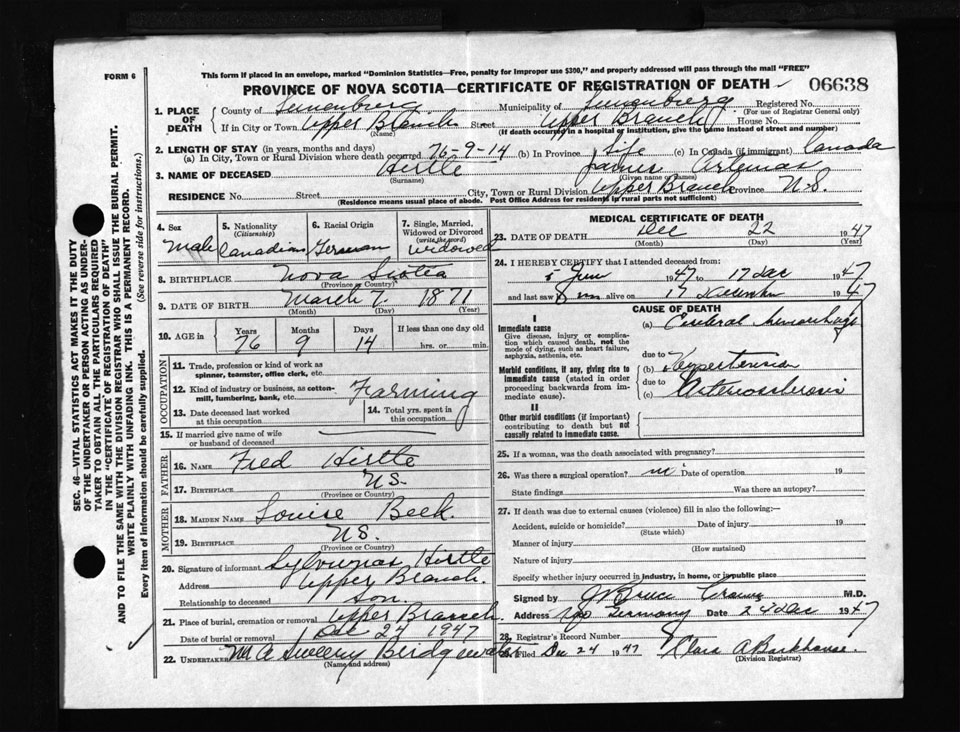 FORM 6
This form if placed in an envelope, marked "Dominion Statistics—Free, penalty for improper use $300," and properly addressed will pass through the mail "FREE"
PROVINCE OF NOVA SCOTIA—CERTIFICATE OF REGISTRATION OF DEATH 06638
1. PLACE OF DEATH
County of Lunenburg Municipality of Lunenburg Registered No.
(For use of Registrar General only)
If in City or Town Upper Branch Street Upper Branch House No.
(Name) (If death occurred in a hospital or institution, give the name instead of street and number)
2. LENGTH OF STAY (in years, months and days)
(a) In City, Town or Rural Division where death occurred 76-9-14 (b) In Province Life (c) In Canada (if immigrant) Canada
3. NAME OF DECEASED Hirtle James Artemas
(Surname) (Given name or names)
RESIDENCE No. Street City, Town or Rural Division Upper Branch Province N.S.
(Residence means usual place of abode. Post Office Address for residents in rural parts not sufficient)
4. Sex Male
5. Nationality (Citizenship) Canadian
6. Racial Origin German
7. Single, Married, Widowed or Divorced (write the word) Widowed
8. BIRTHPLACE Nova Scotia
(Province or Country)
9. DATE OF BIRTH March 7, 1871
(Month) (Day) (Year)
10. AGE in Years 76 Months 9 Days 14 If less than one day old hrs. or min.
OCCUPATION
11. Trade, profession or kind of work as spinner, teamster, office clerk, etc.
12. Kind of industry or business, as cotton-mill, lumbering, bank, etc. Farming
13. Date deceased last worked at this occupation
14. Total yrs. spent in this occupation
15. If married give name of wife or husband of deceased
FATHER
16. NAME Fred Hirtle
17. BIRTHPLACE N.S.
(Province or Country)
MOTHER
18. MAIDEN NAME Louise Beck.
19. BIRTHPLACE N.S.
(Province or Country)
20. Signature of informant Hirtle
Address Upper Branch.
Relationship to deceased Son.
21. Place of burial, cremation or removal Upper Branch.
Date of burial or removal Dec 24 1947
22. UNDERTAKER M A Sweeny Bridgewater
(Name and address)
MEDICAL CERTIFICATE OF DEATH
23. DATE OF DEATH Dec 22 1947
(Month) (Day) (Year)
24. I HEREBY CERTIFY that I attended deceased from:
5 June 1947 to 17 Dec 1947
and last saw him alive on 17 December 1947
CAUSE OF DEATH
I
Immediate cause
Give disease, injury or complication which caused death, not the mode of dying, such as heart failure, asphyxia, asthenia, etc.
(a) Cerebral hemorrhage
due to
Morbid conditions, if any, giving rise to immediate cause (stated in order proceeding backwards from immediate cause).
(b) Hypertension
due to
(c) Arteriosclerosis
II
Other morbid conditions (if important) contributing to death but not causally related to immediate cause.
25. If a woman, was the death associated with pregnancy?
26. Was there a surgical operation? no Date of operation 19
State findings Was there an autopsy?
27. If death was due to external causes (violence) fill in also the following:—
Accident, suicide or homicide? Date of injury 19
(State which)
Manner of injury
(How sustained)
Nature of injury
Specify whether injury occurred in industry, in home, or in public place
Signed by J Bruce M.D.
Address Germany Date 24 Dec 1947
28. Registrar's Record Number
Filed Dec 24 1947 Clara A Barkhouse.
(Division Registrar)
SEC. 46—VITAL STATISTICS ACT MAKES IT THE DUTY
OF THE UNDERTAKER OR PERSON ACTING AS UNDER-
TAKER TO OBTAIN ALL THE PARTICULARS REQUIRED
IN THE "CERTIFICATE OF REGISTRATION OF DEATH"
AND TO FILE THE SAME WITH THE DIVISION REGISTRAR WHO SHALL ISSUE THE BURIAL PERMIT.
WRITE PLAINLY WITH UNFADING INK. THIS IS A PERMANENT RECORD.
Every item of information should be carefully supplied. (See reverse side for instructions.)